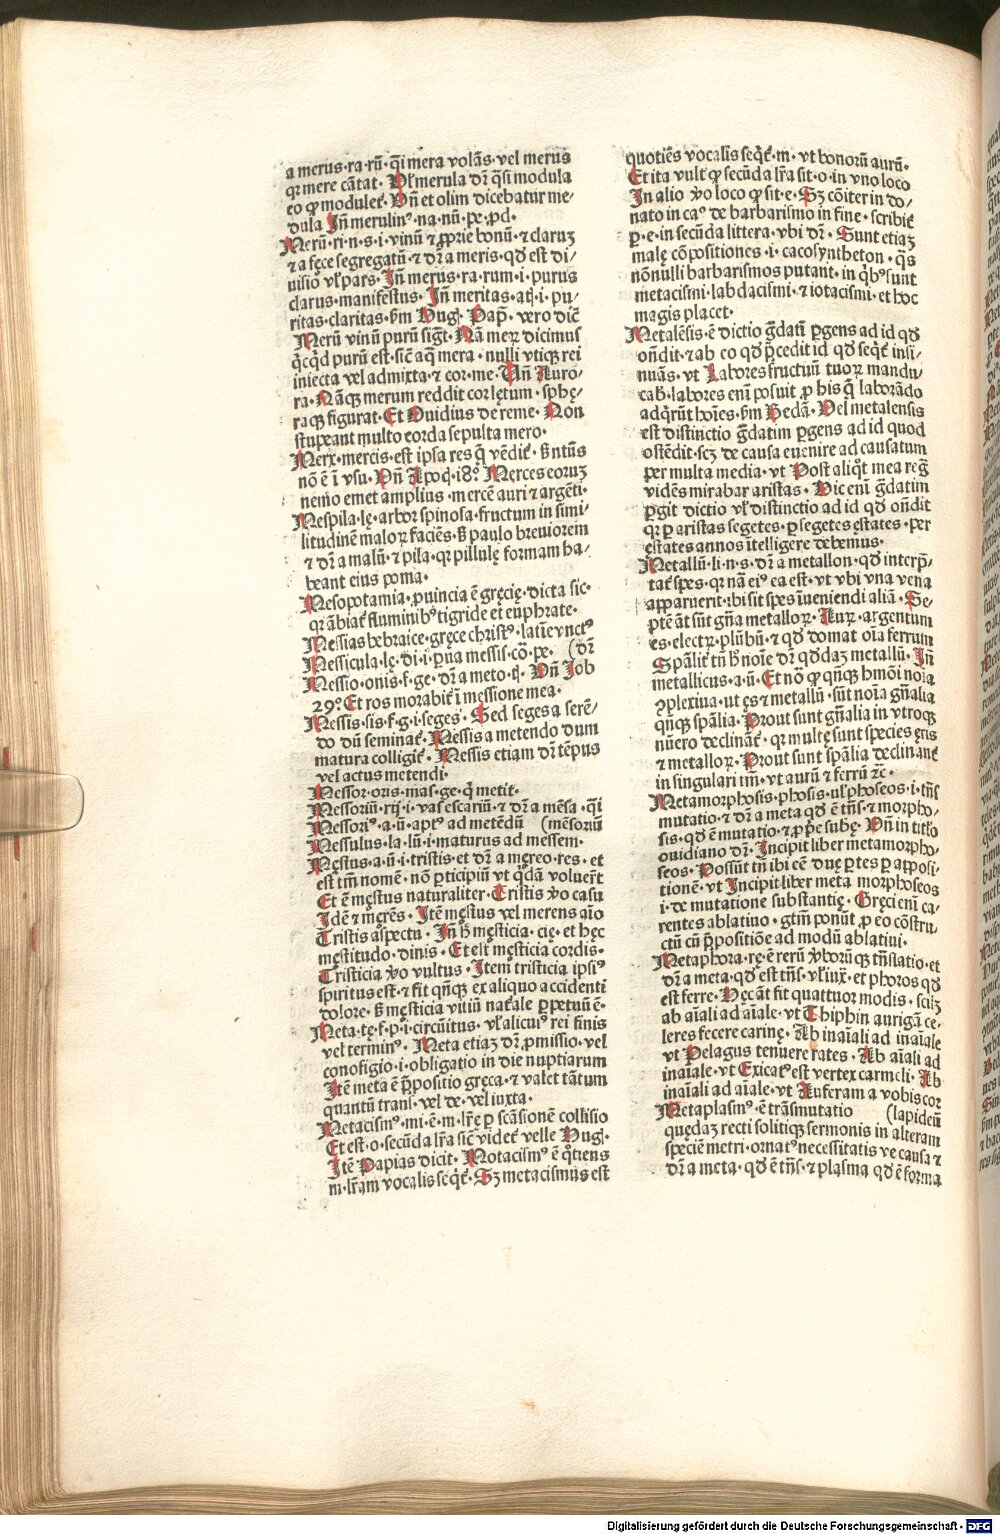 a merus·ra·rū· q̄i mera volās· vel merus
qꝛ mere cātat· Vł merula dr̄ q̄si modula
eo ꝙ modulet᷑· Vn̄ et olim dicebatur me⸗
dula Jn̄ merulin⁹·na·nū· pe·ꝓd·
Merū·ri·n·s·i·vinū ⁊ ꝓprie bonū·⁊ claruꝫ
⁊ a fęce segregatū·⁊ dr̄ a meris·qđ est di⸗
uisio vł pars· Jn̄ merus·ra·rum·i·purus
clarus·manifestus· Jn̄ meritas·atꝭ·i·pu⸗
ritas·claritas·ẜm Hug᷑· Pap̄· vero dic̄
Merū vinū purū sigt᷑· Nā meꝝ dicimus
q̇cqd purū est·sic̄ aq̄ mera·nulli vtiqꝫ rei
iniecta vel admixta·⁊ cor·me·Vn̄ Auro⸗
ra· Nāqꝫ merum reddit cor lętum·sphę⸗
raqꝫ figurat· Et Ouidius de reme· Non
stupeant multo corda sepulta mero·
Merx·mercis·est ipsa res q̄ vēdit᷑·ẜ ntn̄s
nō ē ī vsu· Vn̄ Apoč·18°· Merces eoruꝫ
nemo emet amplius·mercē auri ⁊ argēti·
Mespila·lę·arbor spinosa·fructum in simi⸗
litudinē maloꝝ faciēs·ẜ paulo breuiorem
⁊ dr̄ a malū·⁊ pila·qꝛ pillulę formam ha⸗
beant eius poma·
Mesopotamia·ꝓuincia ē gręcię·dicta sic·
qꝛ ābiat᷑ fluminibꝰ tigride et euphrate·
Messias hebraice·gręce christꝰ·latīe vnctꝰ
Messicula·lę·di·i·ꝑua messis·cō·pe· (dr̄
Messio·onis·f·ge·dr̄ a meto·tꝭ· Vn̄ Job
29°· Et ros morabit᷑ ī messione mea·
Messis·sis·f·g·i·seges· Sed seges a serē⸗
do dū seminat᷑· Messis a metendo dum
matura colligit᷑· Messis etiam dr̄ tēpus
vel actus metendi·
Messor·oris·mas·ge·q̇ metit·
Messoriū·rij·i·vas escariū·⁊ dr̄ a mēsa·q̄i
Messoriꝰ·a·ū·aptꝰ ad metēdū (mēsoriū
Messulus·la·lū·i·maturus ad messem·
Męstus·a·ū·i·tristis·et dr̄ a męreo·res·et
est tm̄ nomē·nō ꝑticipiū vt q̇dā voluer̄t
Et ē męstus naturaliter·Tristis ꝟo casu
Jdē ⁊ męrēs· Jtē męstus vel merens aīo
Tristis aspectu· Jn̄ h̄ męsticia·cię·et hęc
męstitudo·dinis· Et est męsticia cordis·
Tristicia ꝟo vultus· Jtem tristicia ipsiꝰ
spiritus est·⁊ fit qn̄qꝫ ex aliquo accidenti
dolore·ẜ męsticia vitiū nat᷑ale ꝑpetuū ē·
Meta·tę·f·p·i·circūitus·vł alicuiꝰ rei finis
vel terminꝰ· Meta etiaꝫ dr̄ ꝓmissio·vel
conofigio·i·obligatio in die nuptiarum
Jtē meta ē p̄positio gręca·⁊ valet tātum
quantū trans·vel de·vel iuxta·
Metacismꝰ·mi·ē·m·lr̄ę ꝑ scāsionē collisio
Et est·o·secūda lr̄a sic̄ videt᷑ velle Hug᷑·
Jtē Papias dicit· Motacismꝰ ē q̇tiens
m·lr̄am vocalis seq̇t᷑· Sꝫ metacismus est
quotiēs vocalis seq̇t᷑·m·vt bonorū aurū·
Et ita vult ꝙ secūda lr̄a sit·o·in vno loco
In alio ꝟo loco ꝙ sit·e· Sꝫ cōiter in do⸗
nato in caꝰ de barbarismo in fine·scribit᷑
ꝑ·e·in secūda littera·vbi dr̄· Sunt etiaꝫ
malę cōpositiones·i·cacosyntheton·q̄s
nōnulli barbarismos putant·in q̇bꝰ sunt
metacismi·labdacismi·⁊ iotacismi·et hoc
magis placet·
Metalēsis·ē dictio g̈datī ꝑgens ad id qđ
on̄dit·⁊ ab eo qđ p̄cedit id qđ seq̇t᷑ insi⸗
nuās·vt Labores fructuū tuoꝝ mandu⸗
cab·labores enī posuit ꝓ his q̄ laborādo
adqr̄ūt hoīes·ẜm Bedā· Vel metalensis
est distinctio g̈datim ꝑgens ad id quod
ostēdit·scꝫ de causa euenire ad causatum
per multa media·vt Post aliq̇t mea reḡ
vidēs mirabar aristas· Hic enī g̈datim
ꝑgit dictio vł distinctio ad id qđ on̄dit
qꝛ ꝑ aristas segetes·ꝑ segetes ęstates·per
ęstates annos ītelligere debemus·
Metallū·li·n·s·dr̄ a metallon·qđ interp̄⸗
tat᷑ spes·qꝛ nā eiꝰ ea est·vt vbi vna vena
apparuerit·ibi sit spes īueniendi aliā· Se⸗
ptē āt sūt gn̄a metalloꝝ· Auꝝ·argentum
ęs·electꝝ·plūbū·⁊ qđ domat oīa ferrum
Spālit᷑ tn̄ h̄ noīe dr̄ qđdaꝫ metallū· Jn̄
metallicus·a·ū· Et nō ꝙ qn̄qꝫ hmōi noīa
ꝯplexiua·ut ęs ⁊ metallū·sūt noīa gn̄alia
qn̄qꝫ spālia· Prout sunt gn̄alia in vtroqꝫ
nūero declināt᷑·qꝛ multę sunt species ęris
⁊ metalloꝝ· Prout sunt spālia declinant᷑
in singulari tm̄·vt aurū ⁊ ferrū ⁊c̄·
Metamorphosis·phosis·uł phoseos·i·tn̄s
mutatio·⁊ dr̄ a meta qđ ē tn̄s·⁊ morpho⸗
sis·qđ ē mutatio·⁊ ꝓp̄e subę· Vn̄ in titło
ouidiano dr̄· Incipit liber metamorpho⸗
seos· Possūt tn̄ ibi cē duę ꝑtes ꝑ apposi⸗
tionē·vt Incipit liber meta morphoseos
i·de mutatione substantię· Gręci enī ca⸗
rentes ablatiuo·gtm̄ ponūt ꝓ eo cōstru⸗
ctū cū p̄positiōe ad modū ablatiui·
Metaphora·rę·ē rerū ꝟborūqꝫ tn̄slatio·et
dr̄ a meta·qđ est tn̄s·vł iux̄·et phoros qđ
est ferre· Hęc āt fit quattuor modis·scilꝫ
ab aīali ad aīale·vt Thiphin aurigā ce⸗
leres fecere carinę· Ab inaīali ad inaīale
vt Pelagus tenuere rates· Ab aīali ad
inaīale·vt Exicatꝰ est vertex carmeli· Ab
inaīali ad aīale·vt Auferam a vobis cor
Metaplasmꝰ·ē trāsmutatio (lapideū
quędaꝫ recti solitiqꝫ sermonis in alteram
speciē metri·ornatꝰ necessitatis ve causa ⁊
dr̄ a meta·qđ ē tn̄s·⁊ plasma qđ ē forma
Digitalisierung gefördert durch die Deutsche Forschungsgemeinschaft - DFG